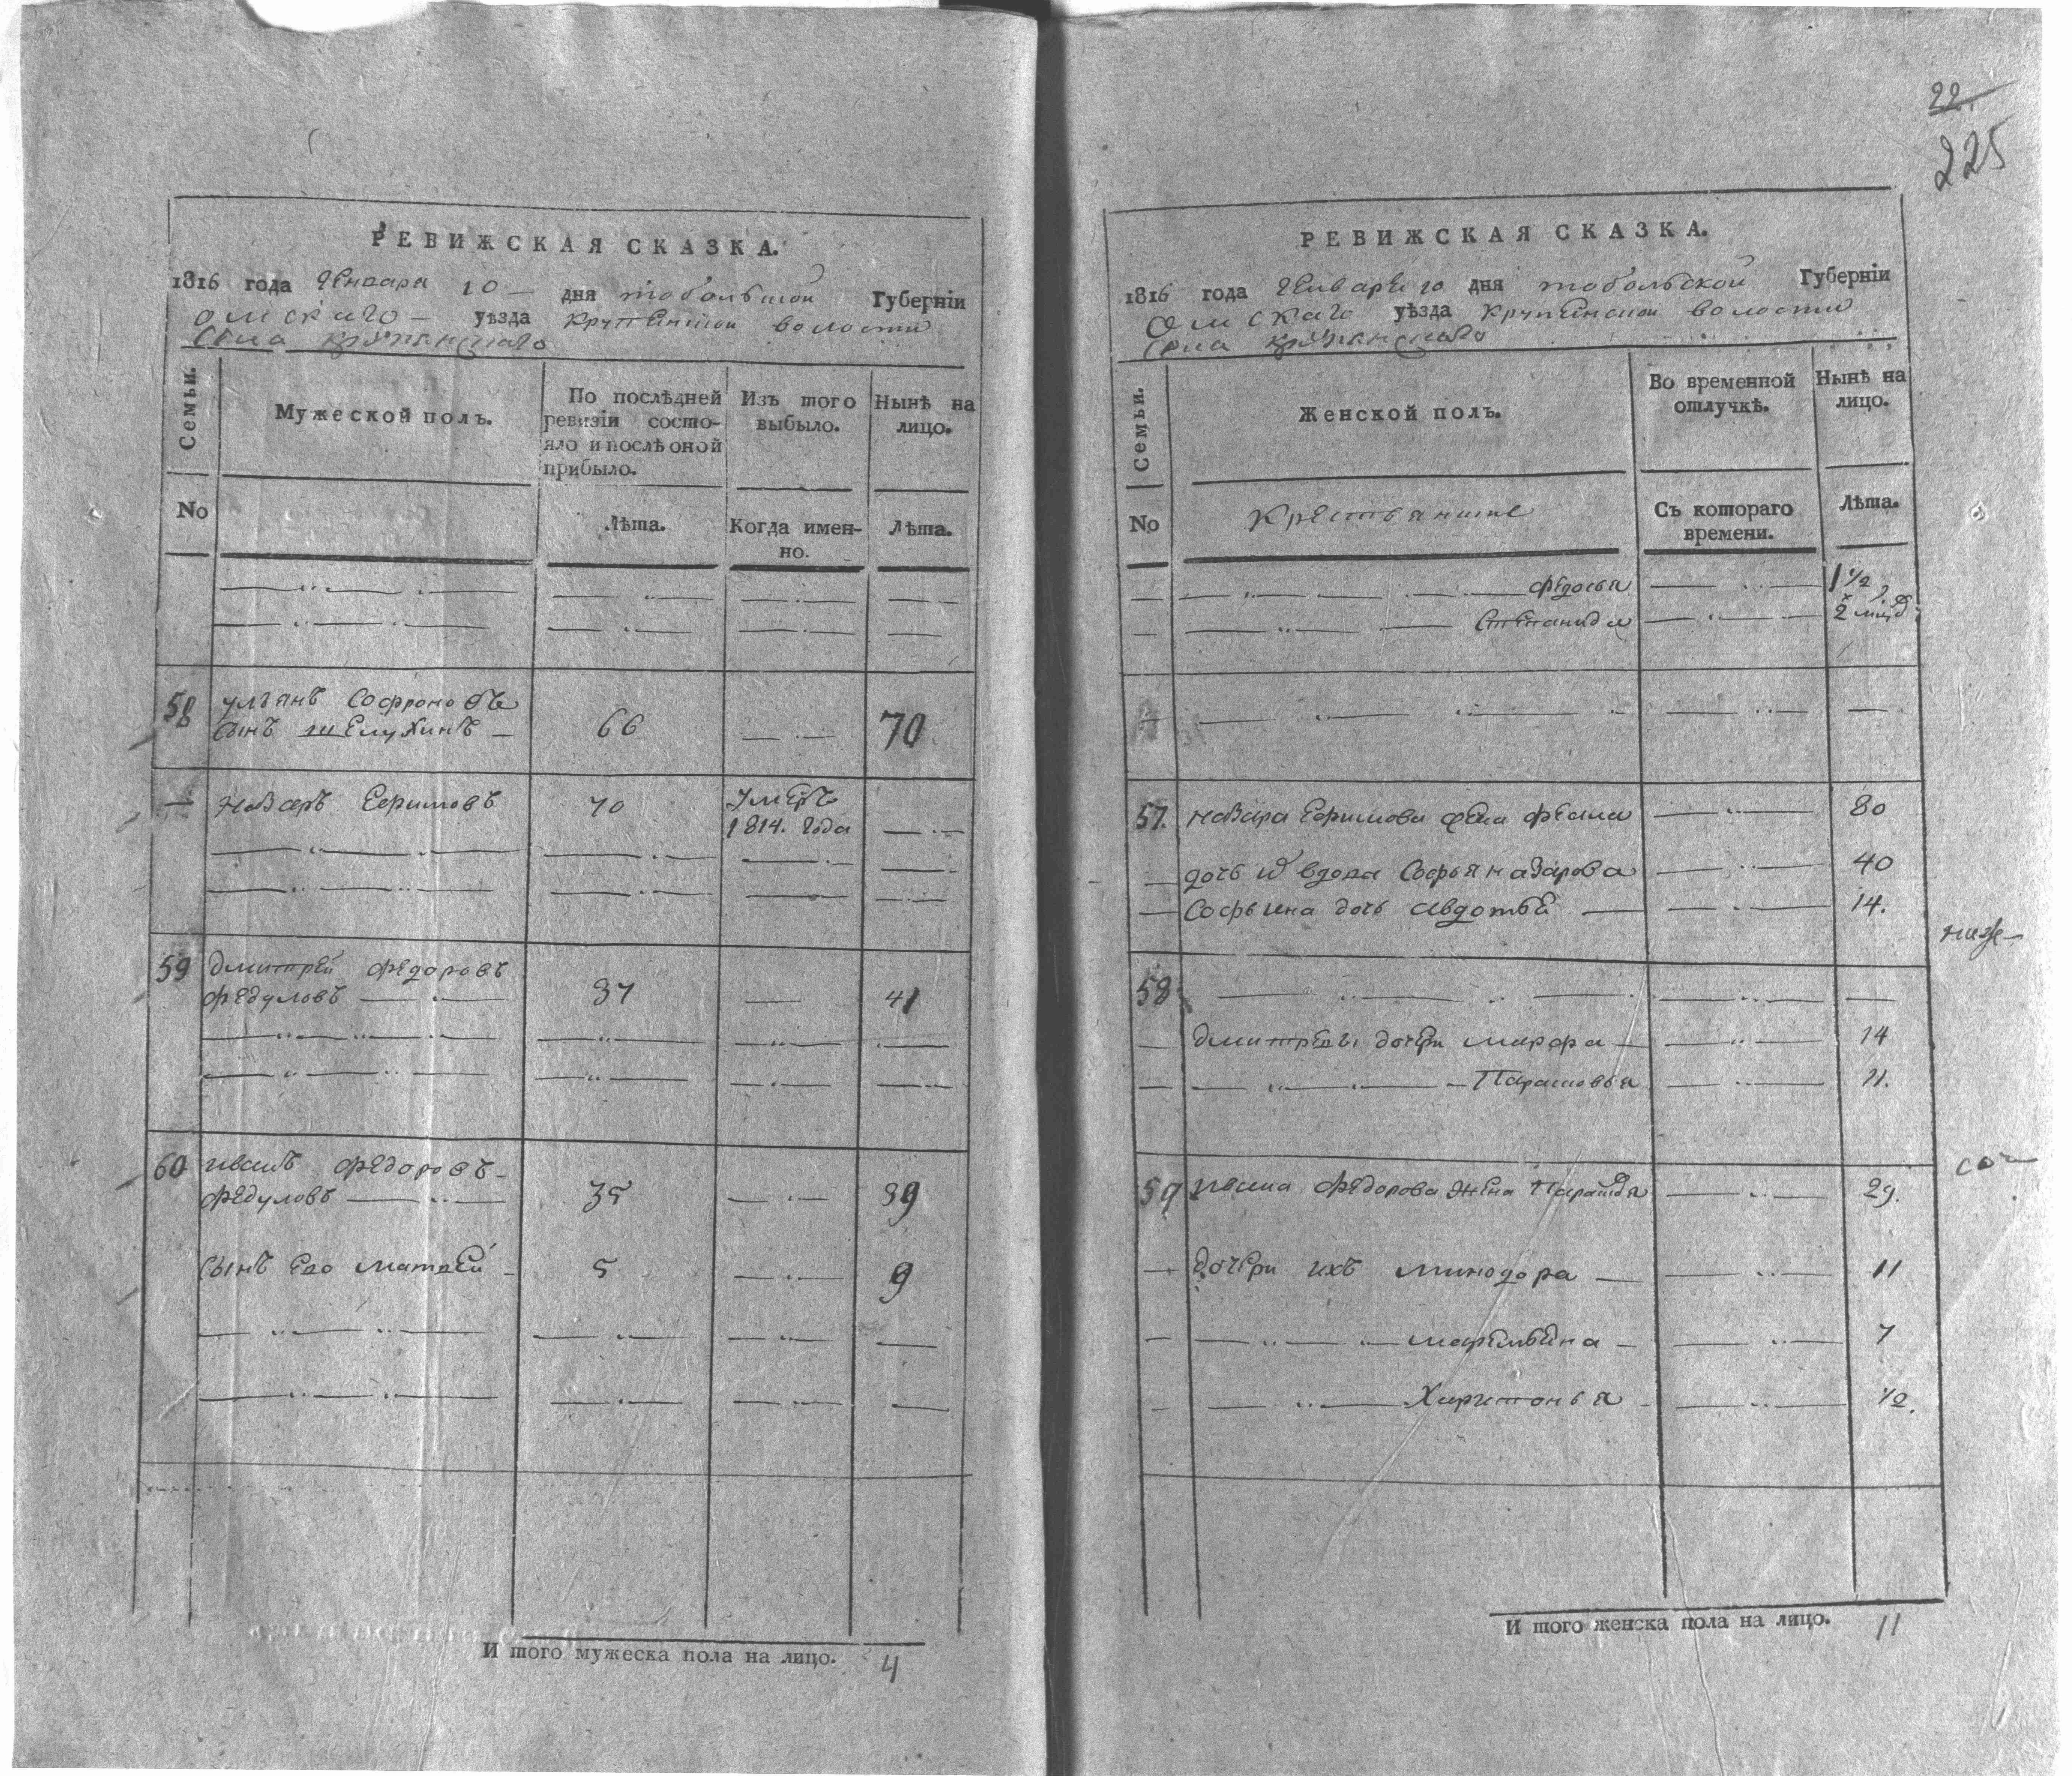 РЕВИЖСКАЯ СКАЗКА.
1816 года Генваря 10 дня тобольской Губерніи
омскаго уѣзда крупенской волости
Села
Семьи.
Мужеской полъ.
По послѣдней ревизіи состо-
яло и послѣ оной прибыло.
Изъ того выбыло.
Нынѣ на лицо.
No
Лѣта.
Когда имен-
но.
Лѣта.
58 ульянъ Софроновъ
сынъ шелухинъ 66 70
назаръ Ефимовъ 70 умеръ
1814. года
59 дмитрей федоровъ
федуловъ 37 41
60 иванъ федоровъ
федуловъ 35 39
сынъ его матвей 5 9
И того мужеска пола на лицо. 4
22.
225
РЕВИЖСКАЯ СКАЗКА.
1816 года Генваря 10 дня тобольской Губерніи
Омскаго уѣзда крупенской волости
Села
Семьи.
Женской полъ.
Во временной отлучкѣ.
Нынѣ на лицо.
No
Крестьянике
Съ котораго времени.
Лѣта.
федосья 1 1/2
Степанида 2
57. назара Ефимова жена 80
дочь вдова Софья назарова 40
Софьина дочь авдотья 14.
ниже
58
дмитревы дочери марфа 14
Парасковья 11.
59 ивана федорова жена 29.
дочери ихъ минодора 11
7
Харитонья 1/2.
И того женска пола на лицо. 11